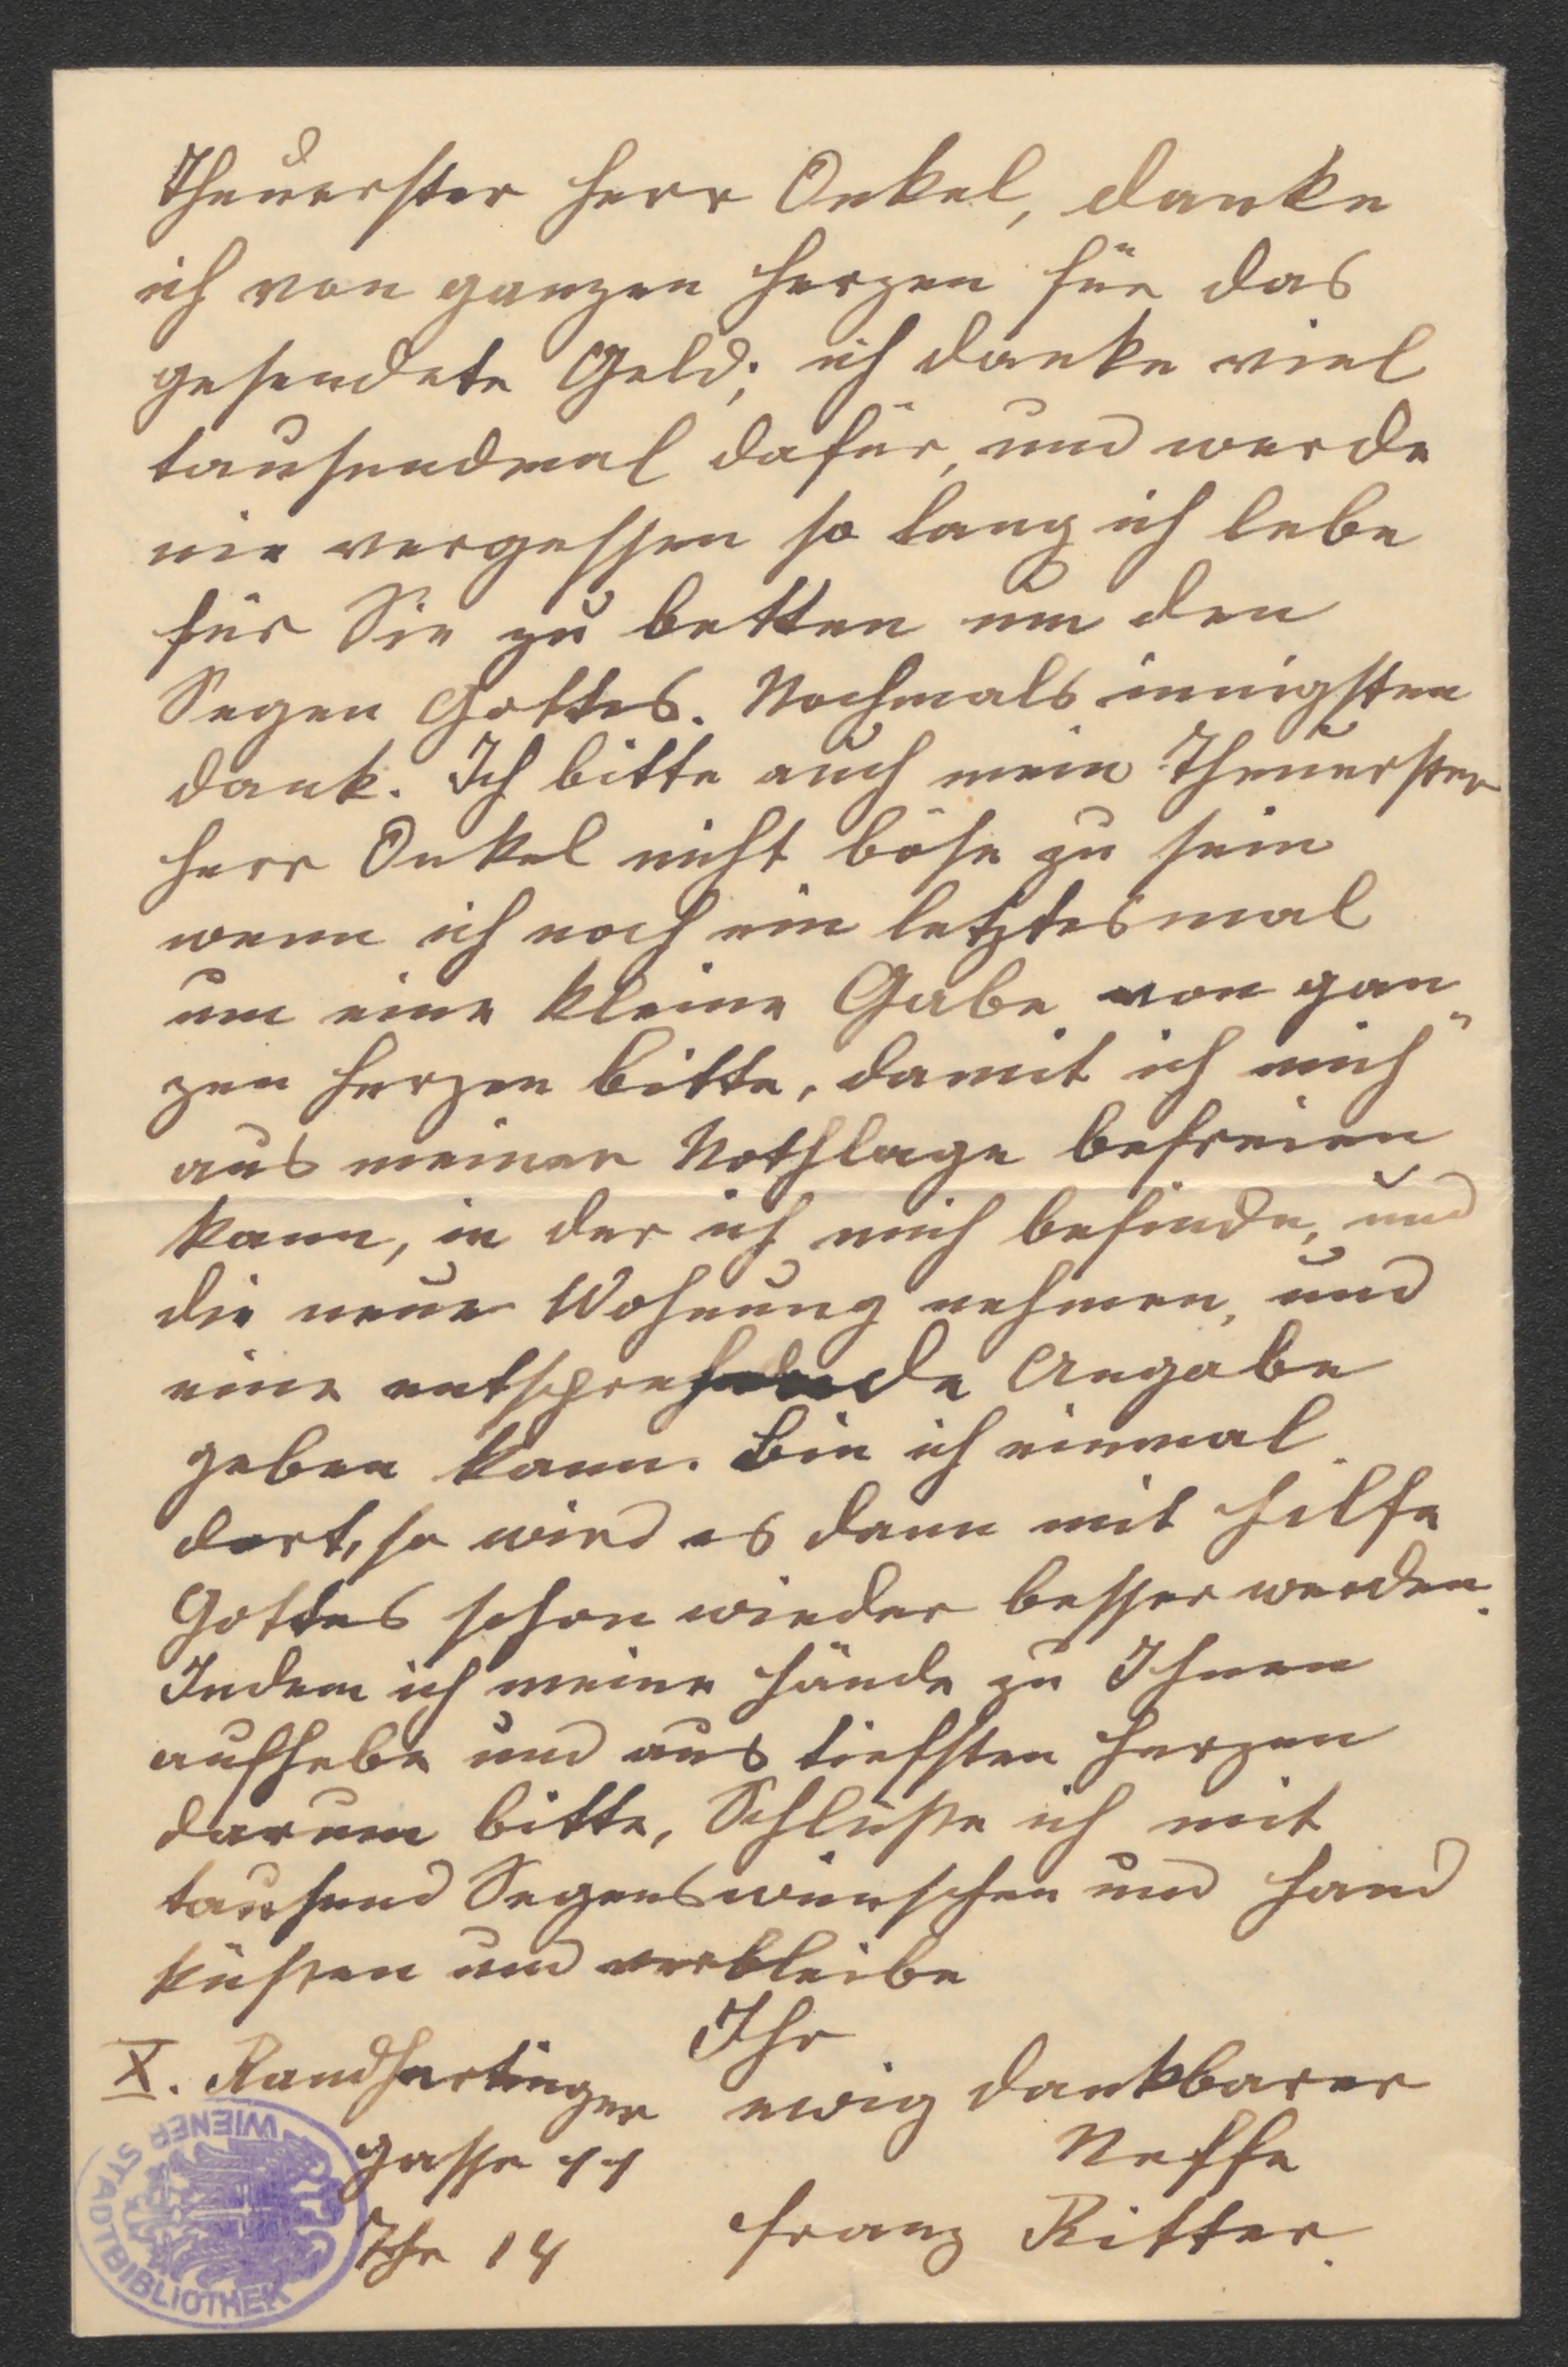 Theuerster Herr Onkel, danke
ich von ganzen Herzen für das
gesendete Geld; ich danke viel
tausendmal dafür, und werde
nie vergessen so lang ich lebe
für Sie zu betten um den
Segen Gottes. Nochmals innigsten
dank. Ich bitte auch mein Theuerster
Herr Onkel nicht böse zu sein
wenn ich noch ein letztesmal
um eine kleine Gabe von gan"
zen Herzen bitte, damit ich mich
aus meiner Nothlage befreien
kann, in der ich mich befinde, und
die neue Wohnung nehmen, und
eine entsprechende Angabe
geben kann. Bin ich einmal
dort, so wird es dann mit Hilfe
Gottes schon wieder besser werden.
Indem ich meine Hände zu Ihnen
aufhebe und aus tiefsten Herzen
darum bitte, Schlüße ich mit
tausend Segenswünschen und Hand
küßen und verbleibe
Ihr
X. Randhartinger ewig dankbarer
gasse 11 Neffe
Thr 14 Franz Ritter.
WIENER STADTBIBLIOTHEK